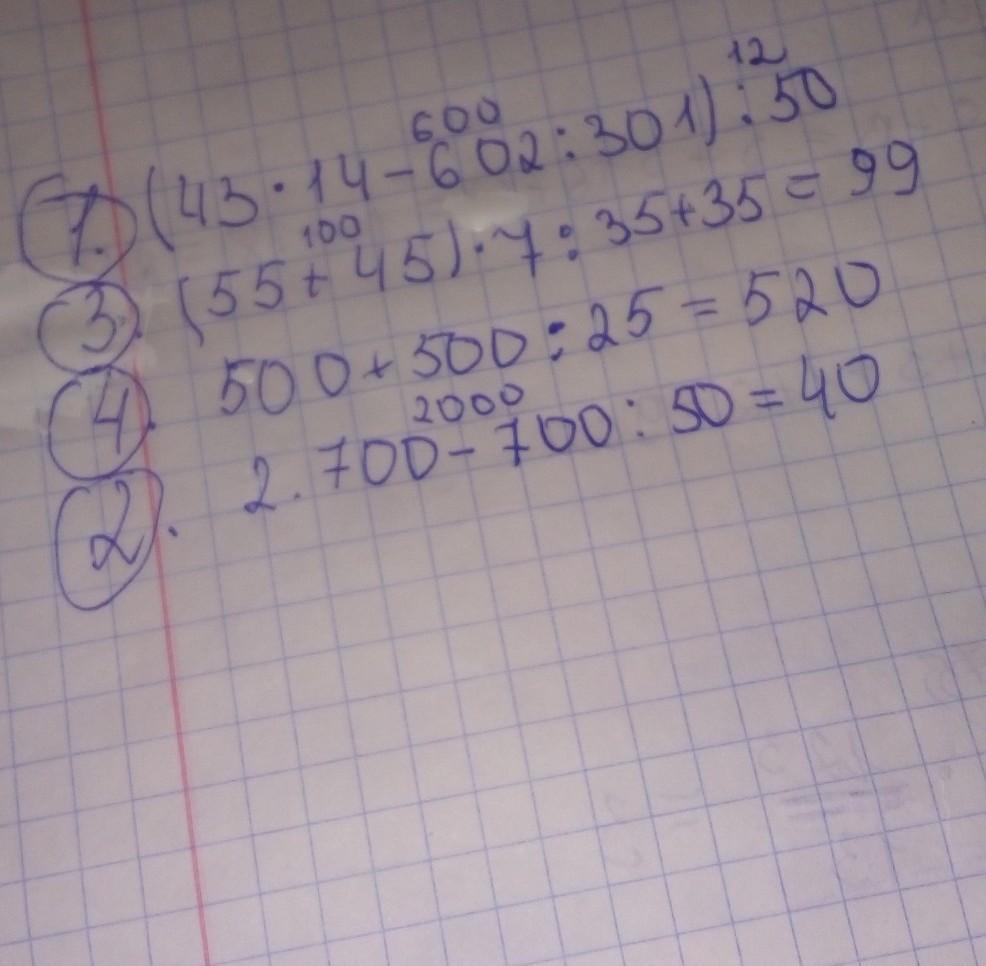 12
600
1. (43·14-602:301):50
100
3. (55+45)·7:35+35=99
4. 500+500:25=520
2000
2. 2.700-700:50=40